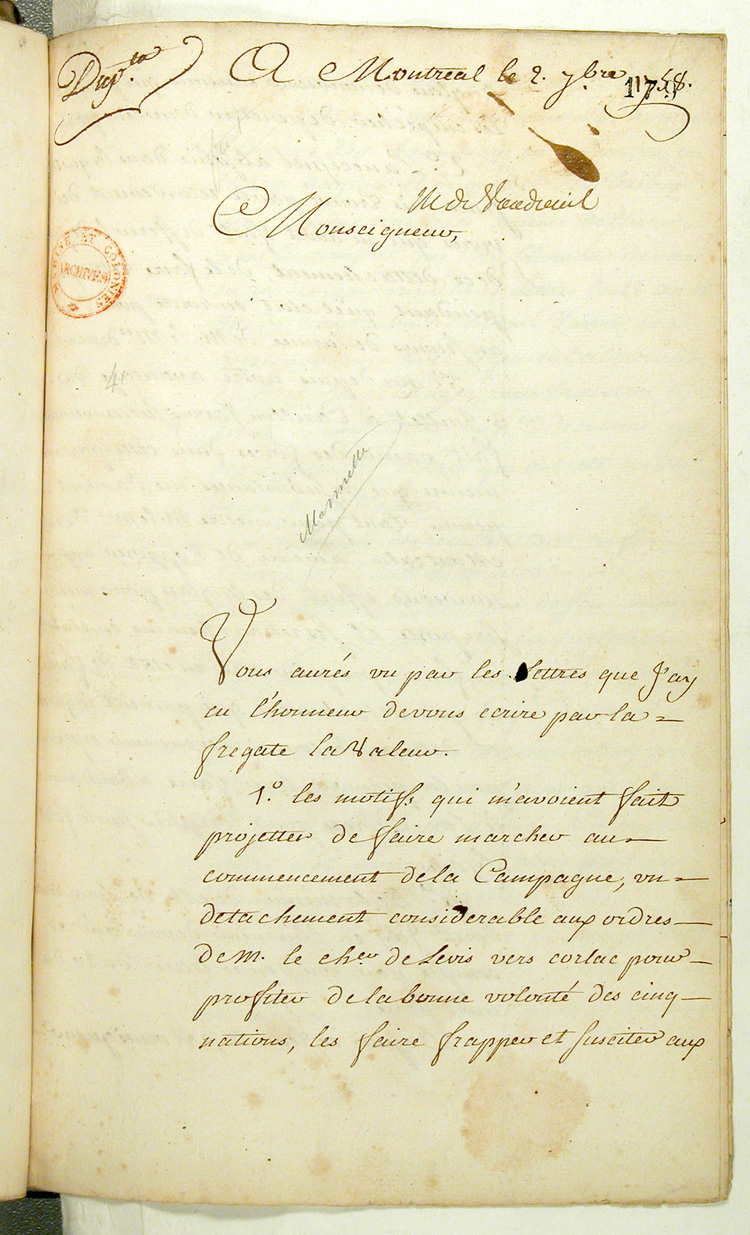 Dup.ta
A Montreal le 2. 7bre 1758.
117
M de Vaudreuil
Monseigneur,
MARINE ET COLONIES
ARCHIVES
Vous aurés vu par les lettres que J'ay
eu l'honneur de vous ecrire par la =
fregate la Valeur.
1.° les motifs qui m'avoient fait
projetter de faire marcher au —
commencement de la Campagne, un =
detachement considerable aux ordres —
de M. le cher. de Levis vers corlac pour —
profiter de la bonne volonté des cinq —
nations, les faire frapper et susciter aux